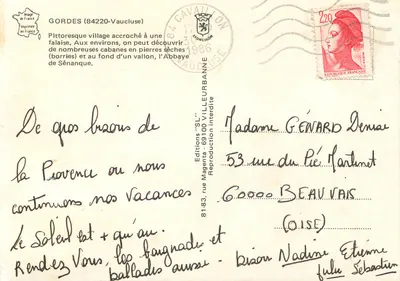 GORDES (84220-Vaucluse)
Pittoresque village accroché à une
falaise, Aux environs, on peut découvrir
de nombreuses cabanes en pierres sèches
(borries) et au fond d'un vallon, l'Abbaye
de Sénanque.
84 CAVAILLON
1986
VAUCLUSE
2,20
De gros bisous de
la Provence ou nous
continuons nos vacances
Le Soleil est + qu'au
Rendez Vous, les baignades et
ballades aussi.
Editions "SL"
81-83, rue Magenta - 69100 VILLEURBANNE
Reproduction interdite
Madame GÉNARD Denise
53 rue du Pié Martinet
60000 BEAUVAIS
(OISE)
bisou Nadine Etienne
Julie Sébastien